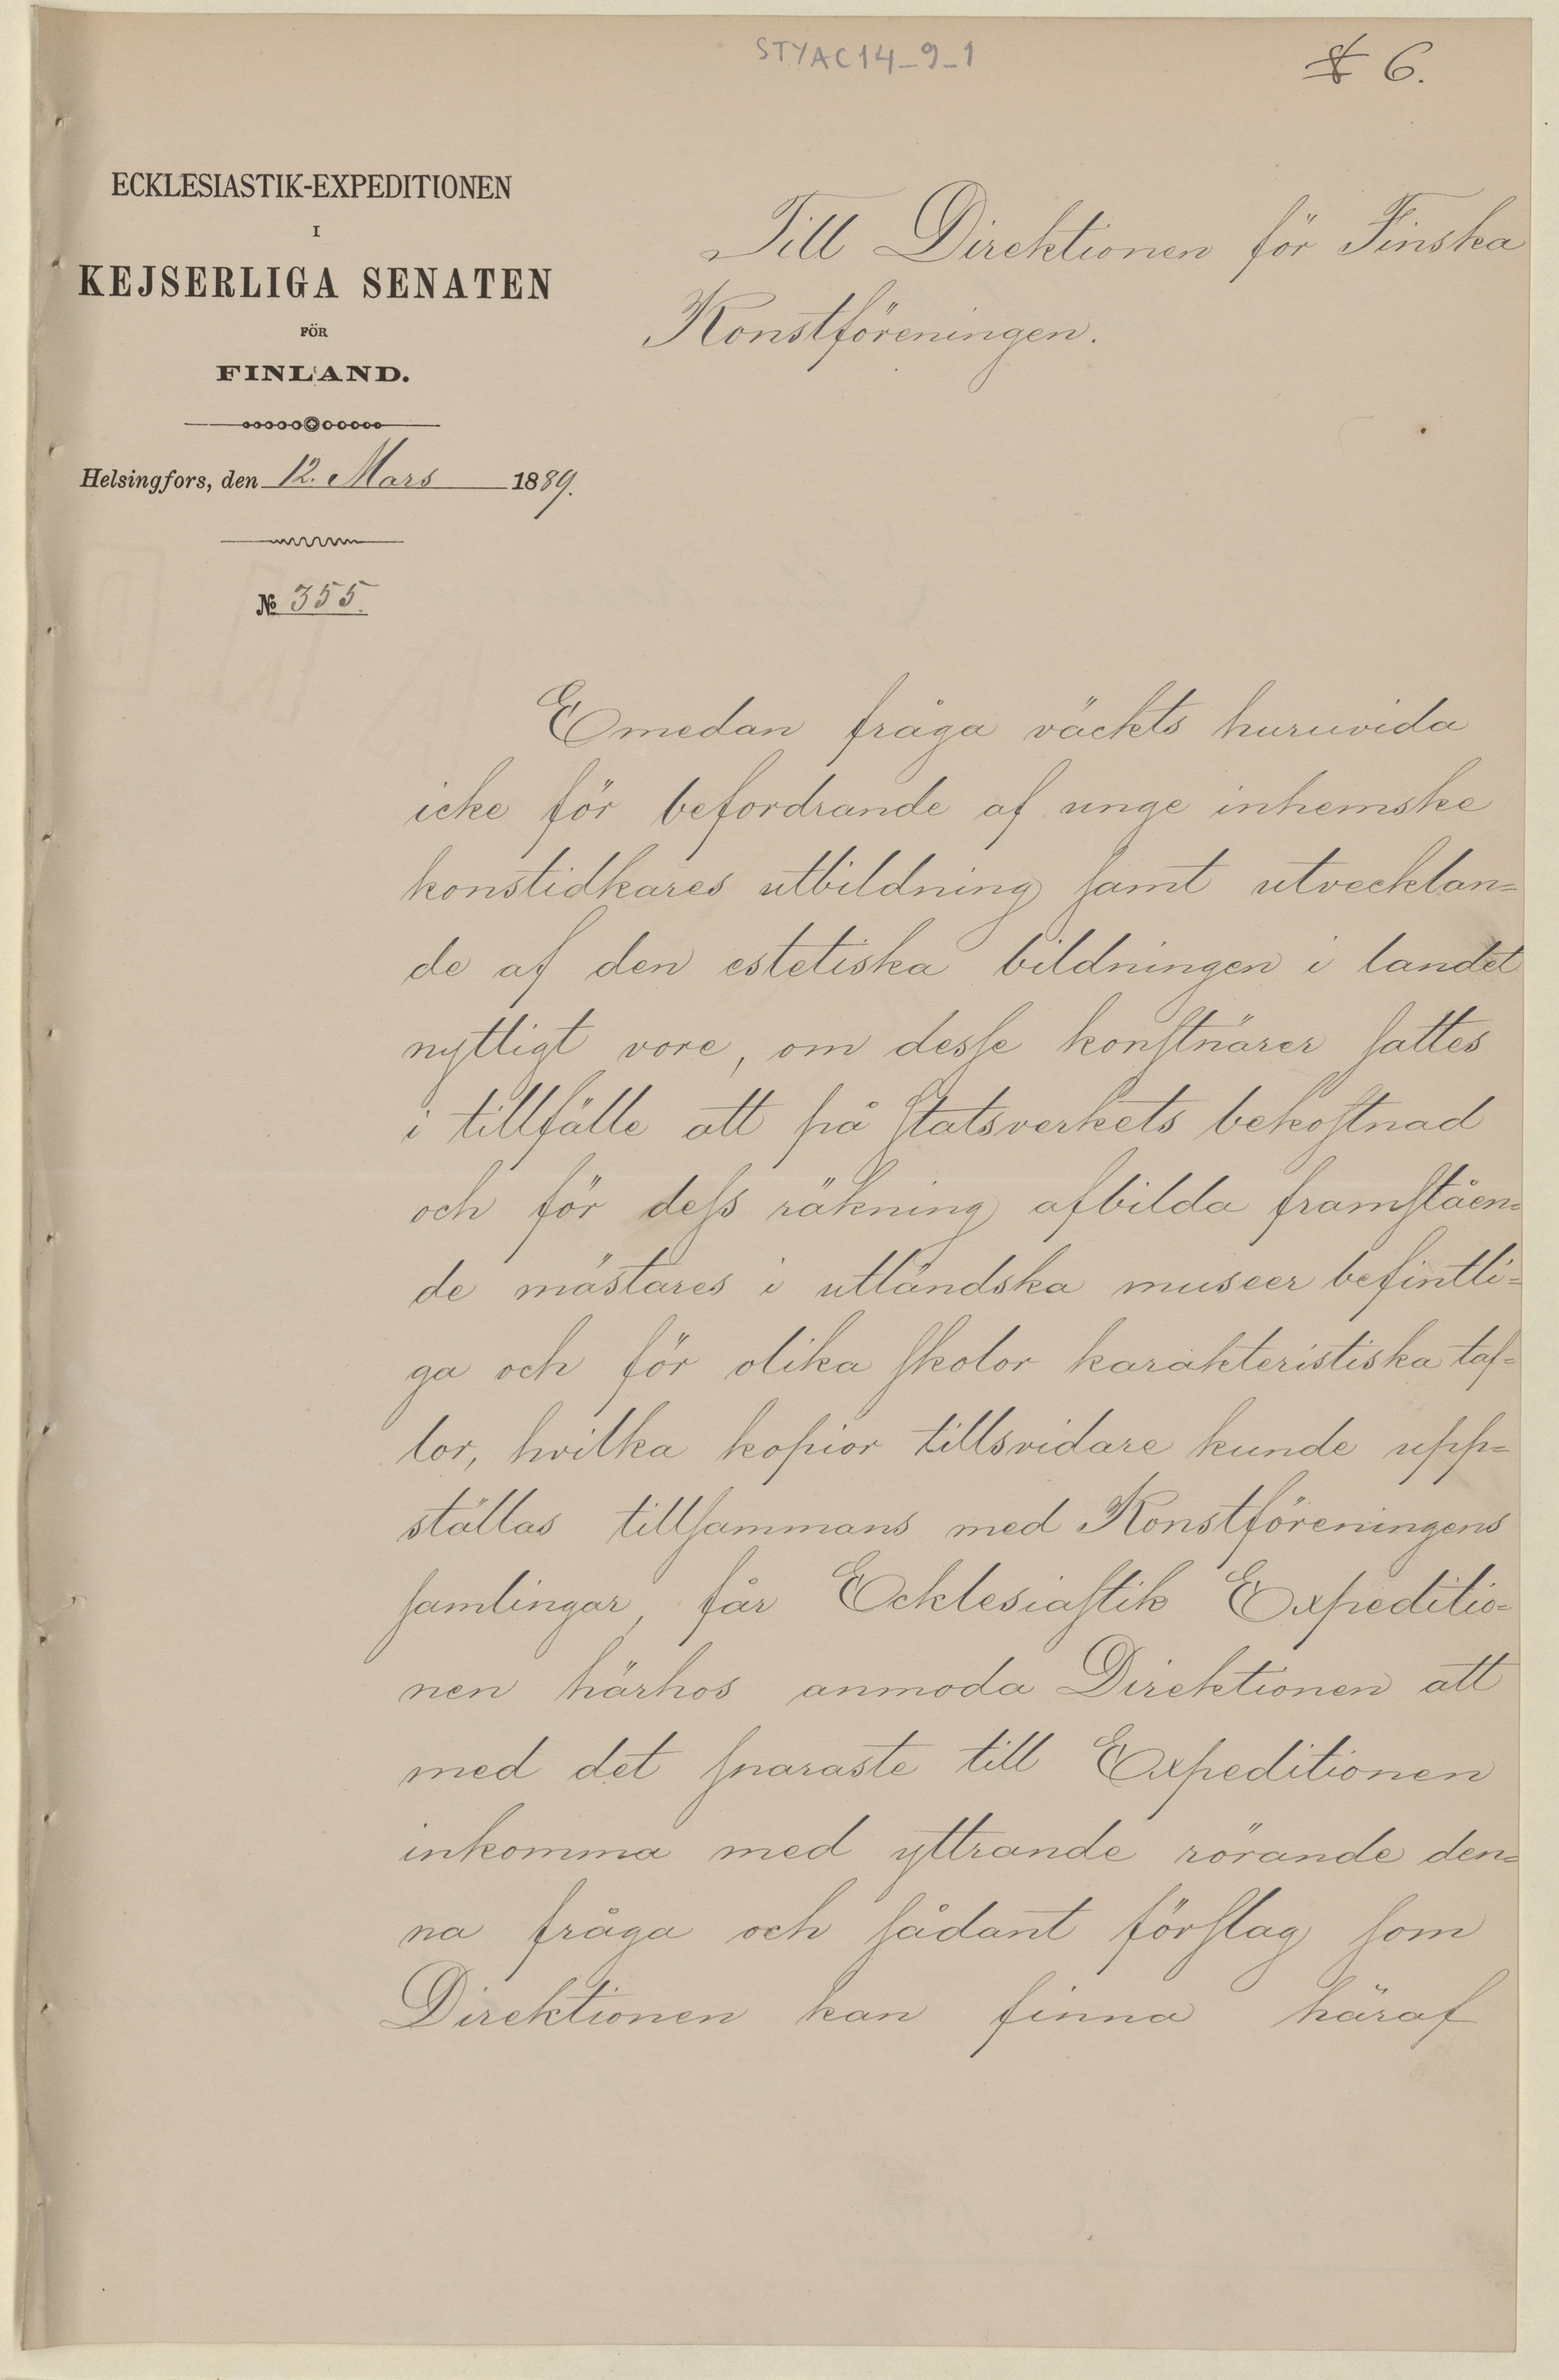 STYAC14_9_1
6.
ECKLESIASTIK-EXPEDITIONEN
I
KEJSERLIGA SENATEN
FÖR
FINLAND.
Helsingfors, den 12. Mars 1889.
№ 355.
Till Direktionen för Finska
Konstföreningen.
Emedan fråga väckts huruvida
icke för befordrande af unge inhemske
konstidkares utbildning samt utvecklan=
de af den estetiska bildningen i landet
nyttigt vore, om desse konstnärer sattes
i tillfälle att på statsverkets bekostnad
och för dess räkning afbilda framståen=
de mästares i utländska museer befintli=
ga och för olika skolor karakteristiska taf=
lor, hvilka kopior tillsvidare kunde upp=
ställas tillsammans med Konstföreningens
samlingar, får Ecklesiastik Expeditio=
nen härhos anmoda Direktionen att
med det snaraste till Expeditionen
inkomma med yttrande rörande den=
na fråga och sådant förslag som
Direktionen kan finna häraf